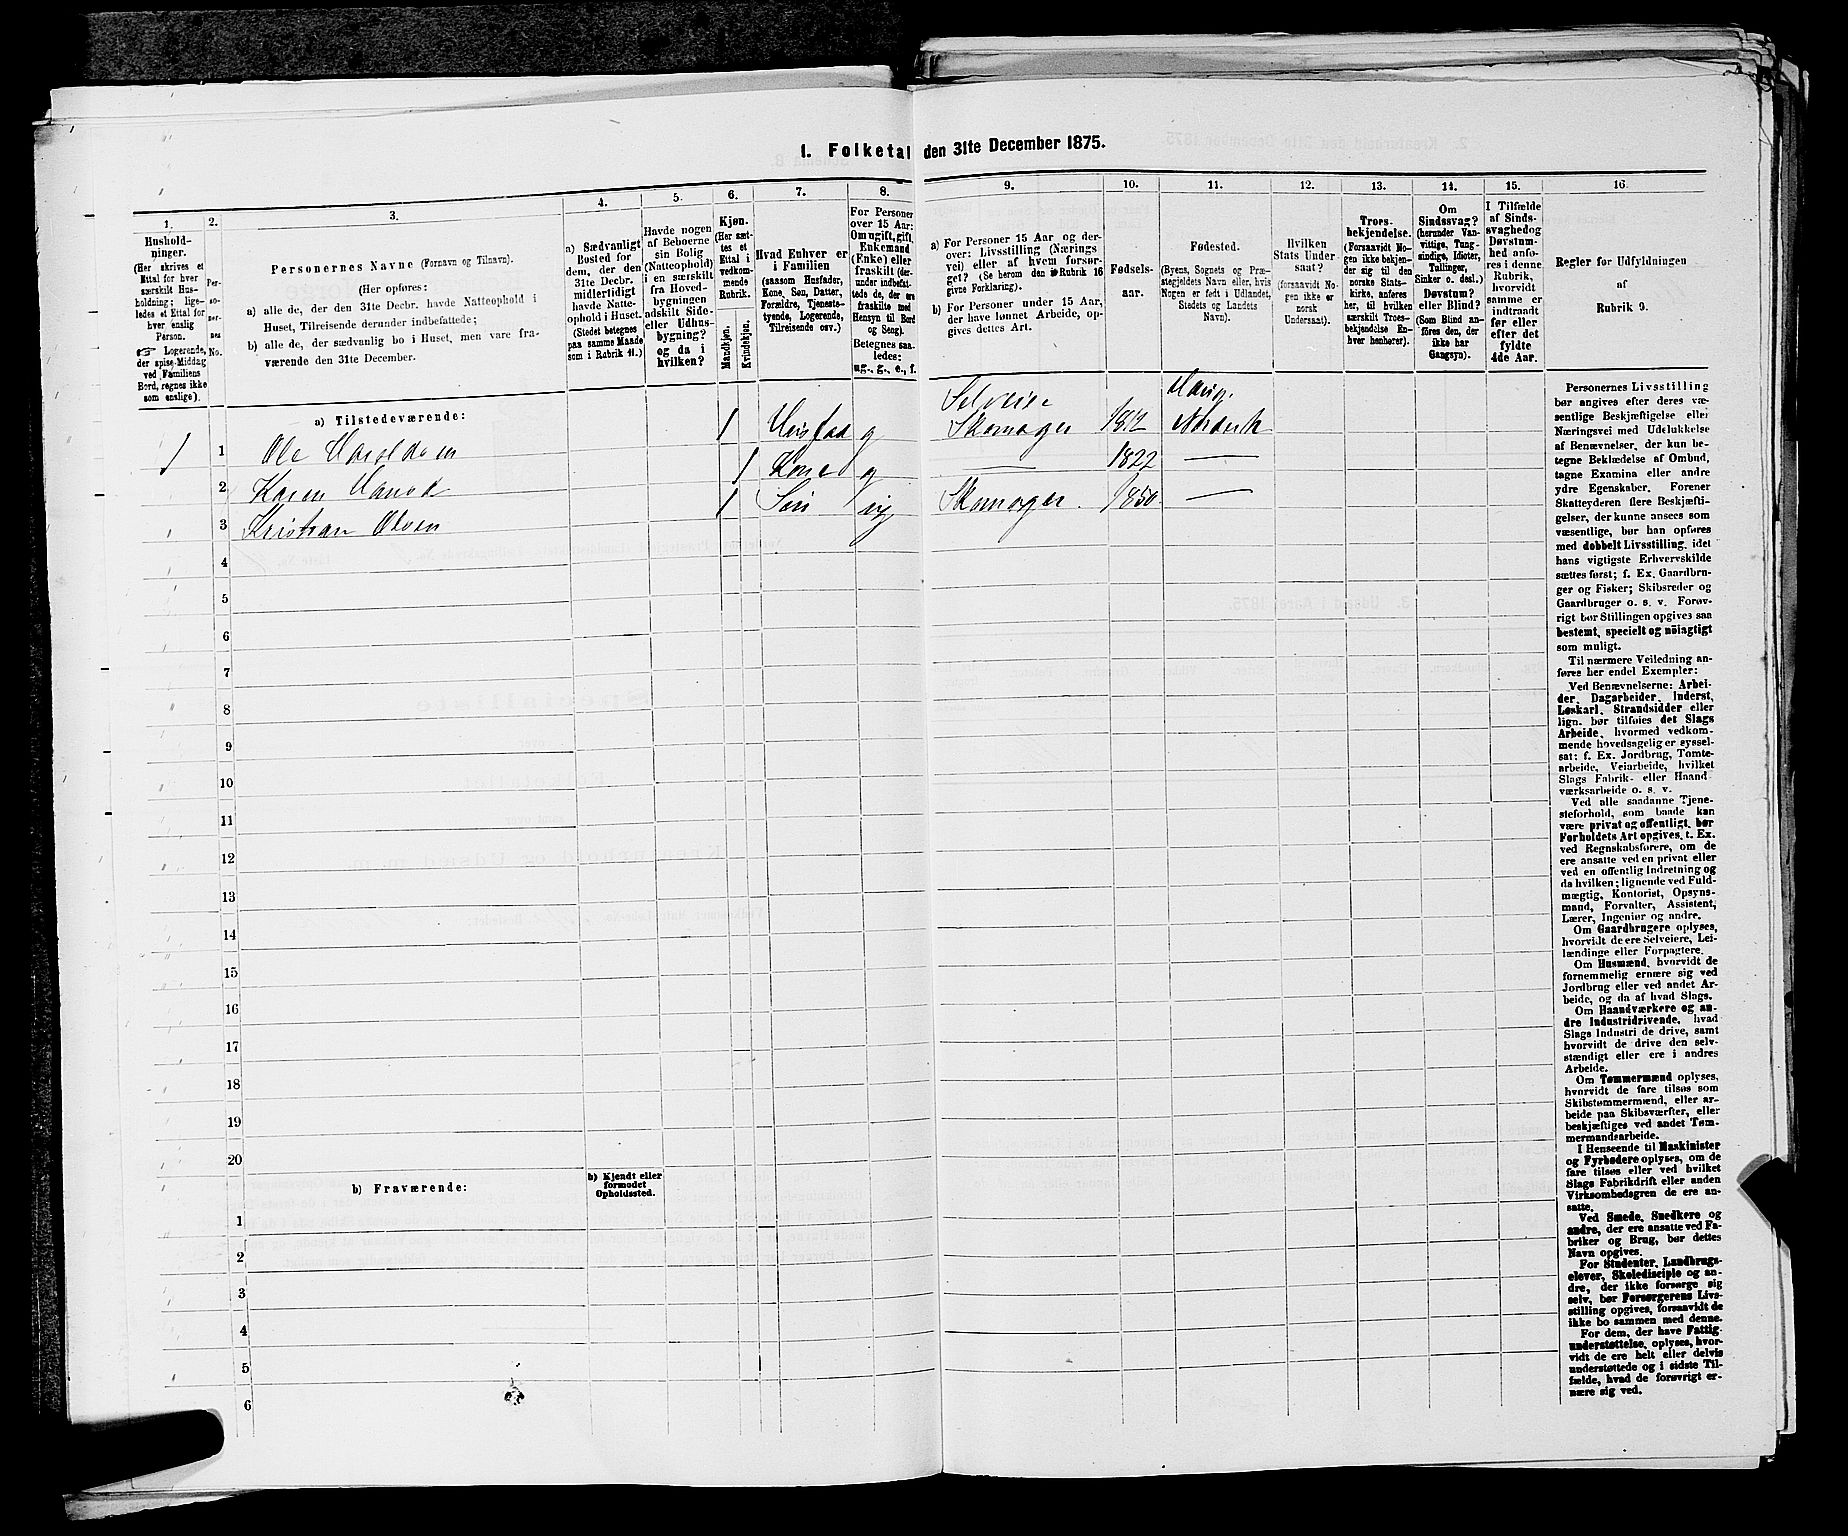 I. Folketal den 31te December 1875.
1.
Hushold-
ninger.
(Her skrives et
Ettal for hver
særskilt Hus-
holdning; lige-
ledes et Ettal for
hver enslig
Person.
☞ Logerende,
der spise Middag
ved Familiens
Bord, regnes ikke
som enslige).
2.
Per-
so-
ner-
nes
No.
3.
Personernes Navne (Fornavn og Tilnavn).
(Her opføres:
a) alle de, der den 31te Decbr. havde Natteophold i
Huset, Tilreisende derunder indbefattede;
b) alle de, der sædvanlig bo i Huset, men vare fra-
værende den 31te December.
4.
a) Sædvanligt
Bosted for
dem, der den
31te Decbr.
midlertidigt
havde Natte-
ophold i Huset.
(Stedet betegnes
paa samme Maade
som i Rubrik 11.)
5.
Havde nogen
af Beboerne
sin Bolig
(Natteophold)
i en særskilt
fra Hoved-
bygningen
adskilt Side-
eller Udhus-
bygning?
og da i
hvilken?
6.
Kjøn.
(Her sæt-
tes et
Ettal i
vedkom-
mende
Rubrik.
Mandkjøn.
Kvindekjøn.
7.
Hvad Enhver er
i Familien
(saasom Husfader,
Kone, Søn, Datter,
Forældre, Tjeneste-
tyende, Logerende,
Tilreisende osv.)
8.
For Personer
over 15 Aar:
Om ugift, gift,
Enkemand
(Enke) eller
fraskilt (der-
under indbefat-
tede de, der ere
fraskilte med
Hensyn til Bord
og Seng).
Betegnes saa-
ledes:
ug., g., e., f.
9.
a) For Personer 15 Aar og der-
over: Livsstilling (Nærings
vei) eller af hvem forsør-
get? (Se herom den i Rubrik 16
givne Forklaring).
b) For Personer under 15 Aar,
der have lønnet Arbeide, op-
gives dettes Art.
10.
Fødsels-
aar.
11.
Fødested.
(Byens, Sognets og Præ-
stegjeldets Navn eller, hvis
Nogen er født i Udlandet,
Stedets og Landets
Navn).
12.
Hvilken
Stats Under-
saat?
(forsaavidt No-
gen ikke er
norsk
Undersaat).
13.
Troes-
bekjendelse.
(Forsaavidt No-
gen ikke bekjen-
der sig til den
norske Stats-
kirke, anføres
her, til hvilken
særskilt Troes-
bekjendelse En-
hver henhører).
14.
Om
Sindssvag?
(herunder Van-
vittige, Tung-
sindige, Idioter,
Tullinger,
Sinker o. desl.)
Døvstum?
eller Blind?
(Som Blind an-
føres den, der
ikke har
Gangsyn).
15.
I Tilfælde
af Sinds-
svaghed og
Døvstum-
hed anfø-
res i denne
Rubrik,
hvorvidt
samme er
indtraadt
før eller
efter det
fyldte
4de Aar.
16.
Regler for Udfyldningen
af
Rubrik 9.
a) Tilstedeværende:
1 1 Ole Haraldsen 1 Husfad g Selveier Skomager 1812 Haug, Norderh
2 Karen Hansd 1 Kone g — 1822 —
3 Kristian Olsen 1 Søn ug Skomager. 1850 —
4
5
6
7
8
9
10
11
12
13
14
15
16
17
18
19
20
b) Fraværende:
b) Kjendt eller
formodet
Opholdssted.
1
2
3
4
5
6
Personernes Livsstilling
bør angives efter deres væ-
sentlige Beskjæftigelse eller
Næringsvei med Udelukkelse
af Benævnelser, der kun be-
tegne Beklædelse af Ombud,
tagne Examina eller andre
ydre Egenskaber. Forener
Skatteyderen flere Beskjæfti-
gelser, der kunne ansees som
væsentlige, bør han opføres
med dobbelt Livsstilling, idet
hans vigtigste Erhvervskilde
sættes først; f. Ex. Gaardbru-
ger og Fisker; Skibsreder og
Gaardbruger o. s. v. Forøv-
rigt bør Stillingen opgives saa
bestemt, specielt og nöiagtigt
som muligt.
Til nærmere Veiledning an-
føres her endel Exempler:
Ved Benævnelserne: Arbei-
der, Dagarbeider, Inderst,
Løskarl, Strandsidder eller
lign. bør tilføies det Slags
Arbeide, hvormed vedkom-
mende hovedsagelig er syssel-
sat; f. Ex. Jordbrug, Tomte-
arbeide, Veiarbeide, hvilket
Slags Fabrik- eller Haand-
værksarbeide o. s. v.
Ved alle saadanne Tjene-
steforhold, som baade kan
være privat og offentligt, bør
Forholdets Art opgives, t. Ex.
ved Regnskabsførere, om de
ere ansatte ved en privat eller
ved en offentlig Indretning og
da hvilken; lignende ved Fuld-
mægtig, Kontorist, Opsyns-
mand, Forvalter, Assistent,
Lærer, Ingeniør og andre.
Om Gaardbrugere oplyses,
hvorvidt de ere Selveiere, Lei-
lændinge eller Forpagtere.
Om Husmænd, hvorvidt de
fornemmelig ernære sig ved
Jordbrug eller ved andet Ar-
beide, og da af hvad Slags.
Om Haandværkere og an-
dre Industridrivende, hvad
Slags Industri de drive, samt
hvorvidt de drive den selv-
stændigt eller ere i andres
Arbeide.
Om Tømmermænd oplyses,
hvorvidt de fare tilsøs som
Skibstømmermænd, eller ar-
beide paa Skibsværfter, eller
beskjæftiges ved andet Tøm-
mermandsarbeide.
I Henseende til Maskinister
og Fyrbødere oplyses, om de
fare tilsøs eller ved hvilket
Slags Fabrikdrift eller anden
Virksomhedsgren de ere an-
satte.
Ved Smede, Snedkere og
andre, der ere ansatte ved Fa-
briker og Brug, bør dettes
Navn opgives.
For Studenter, Landbrugs-
elever, Skoledisciple og an-
dre, der ikke forsørge sig
selv, bør Forsørgerens Livs-
stilling opgives, forsaavidt de
ikke bo sammen med denne.
For dem, der have Fattig-
understøttelse, oplyses, hvor-
vidt de ere helt eller delvis
understøttede og i sidste Til-
fælde, hvad de forøvrigt er-
nære sig ved.